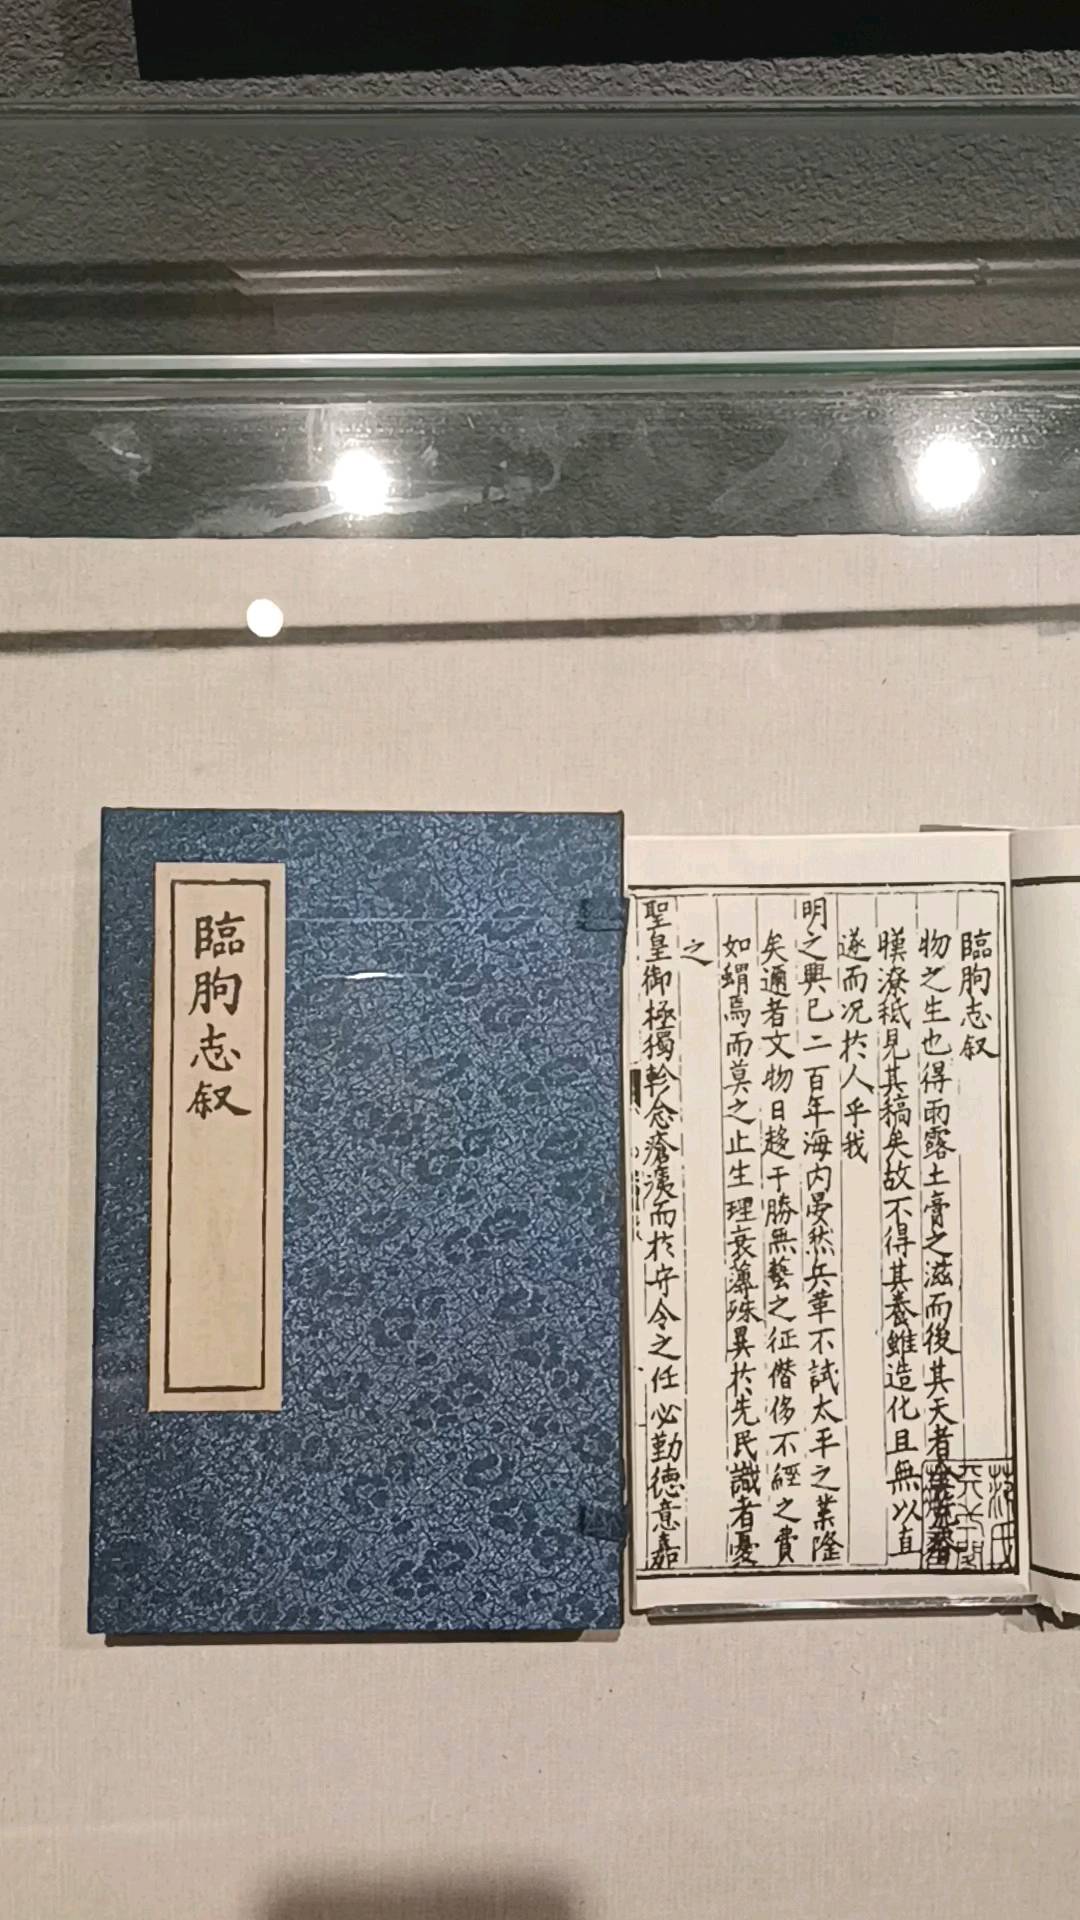 臨朐志叙
臨朐志叙
物之生也得雨露土膏之滋而後其天者
暵潦秪見其槁矣故不得其養雖造化且無以直
遂而况於人乎我
明之興已二百年海内晏然兵革不試太平之業隆
矣邇者文物日趍于勝無藝之征僭侈不經之費
如蝟焉而莫之止生理衰薄殊異於先民識者憂
之
聖皇御極獨軫念瘡痍而於守令之任必勤德意茹